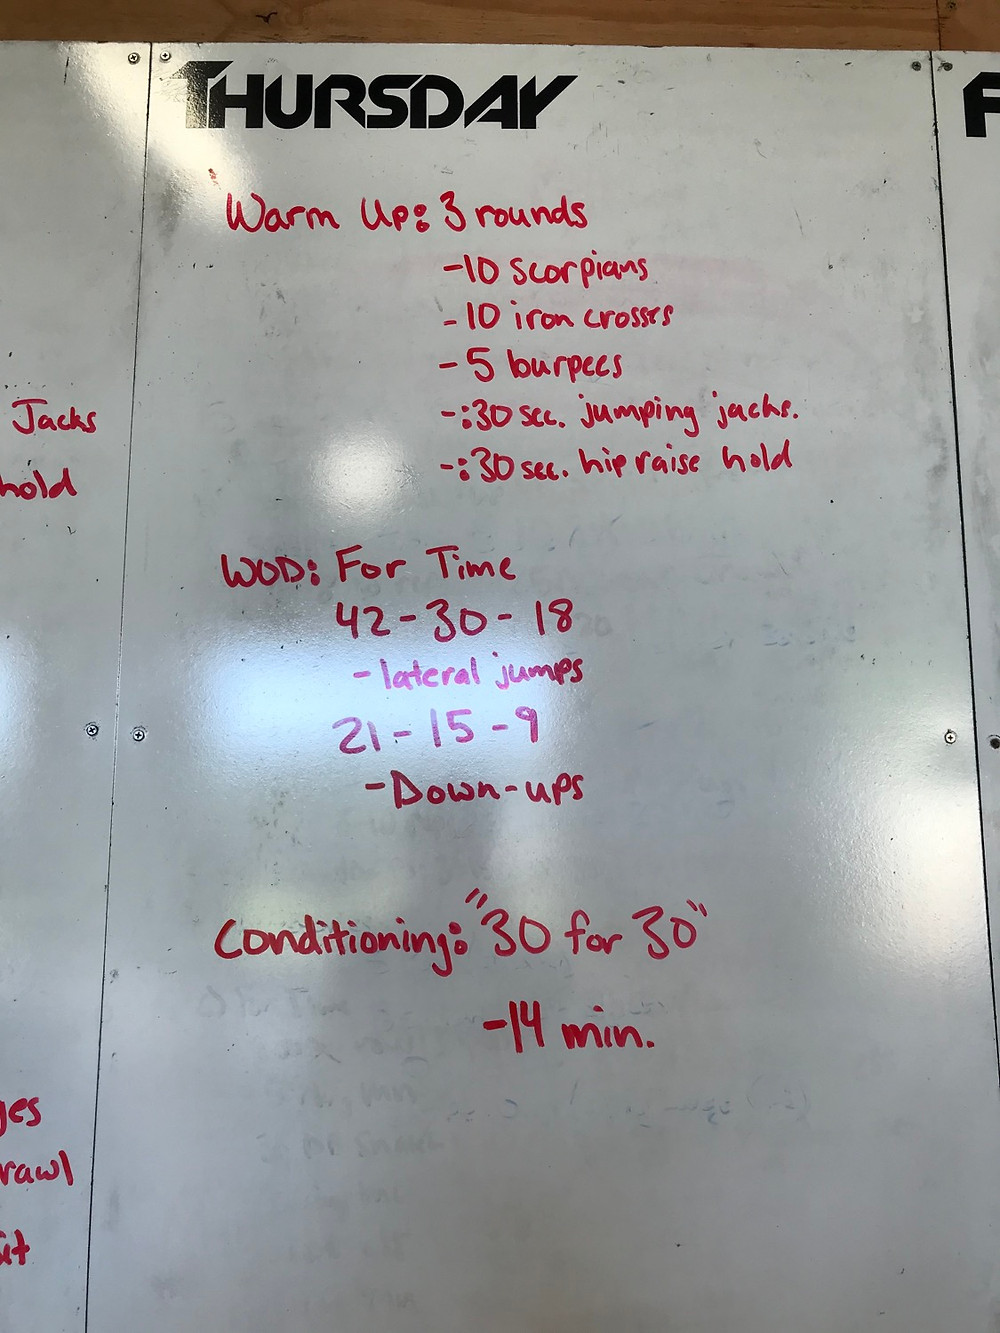 THURSDAY
F
Warm Up: 3 rounds
-10 scorpians
-10 iron crosses
-5 burpees
-:30 sec. jumping jacks.
-:30 sec. hip raise hold
Jacks
hold
WOD: For Time
42-30-18
-lateral jumps
21-15-9
-Down-ups
Conditioning: "30 for 30"
-14 min.
ges
rawl
it